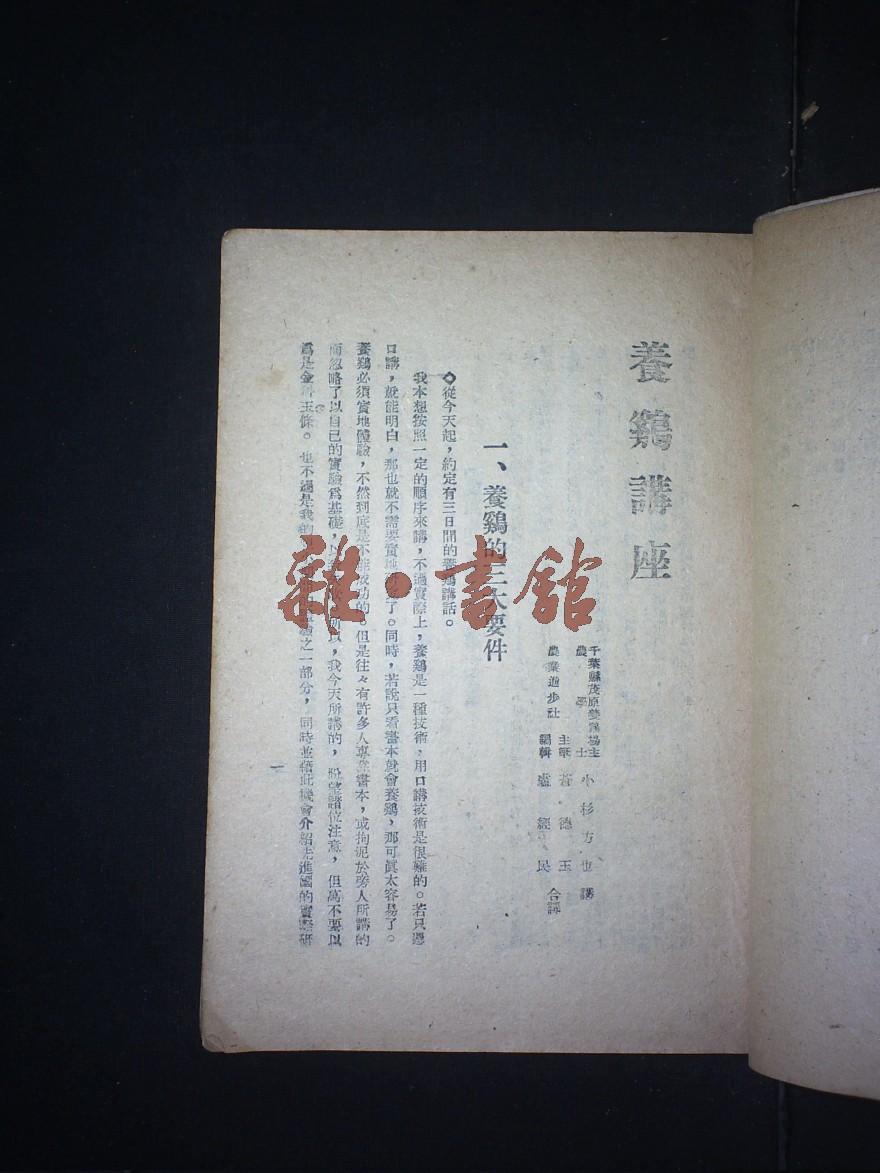 養鷄講座
千葉縣茂原養鷄場主
農學士 小杉方也講
主事 蒼德玉
農業進步社 編輯 盧經民 合譯
一、養鷄的三大要件
◇從今天起，約定有三日間的養鷄講話。
我本想按照一定的順序來講，不過實際上，養鷄是一種技術，用口講技術是很難的。若只憑
口講，就能明白，那也就不需要實地 了。同時，若說只看書本就會養鷄，那可眞太容易了。
養鷄必須實地體驗，不然到底是不能成功的。但是往々有許多人專業書本，或拘泥於旁人所講的
而忽略了以自己的實驗爲基礎，以 所以，我今天所講的，盼望諸位注意，但萬不要以
爲是金科玉條。也不過是我的 驗之一部分，同時並藉此機會介紹先進國的實際研
一
雜·書館